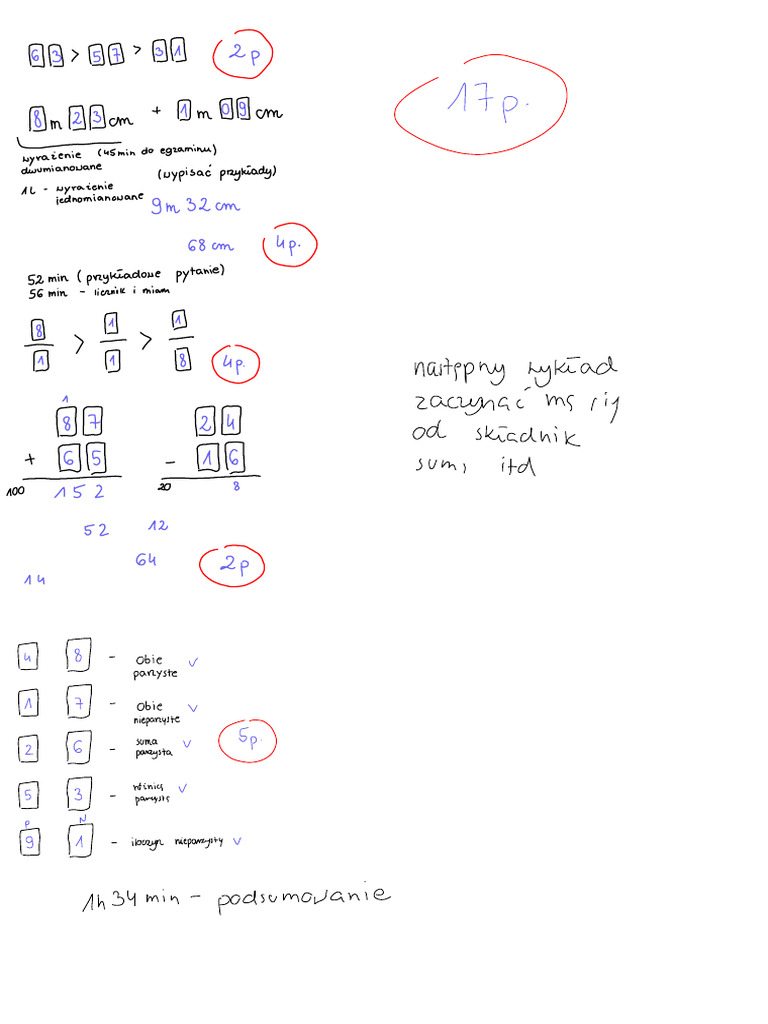 63 > 57 > 31 2p
17p.
8 m 23 cm + 1 m 09 cm
wyrażenie (45 min do egzaminu)
dwumianowane
(wypisać przykłady)
1L - wyrażenie
jednomianowane
9 m 32 cm
68 cm 4p.
52 min (przykładowe pytanie)
56 min - licznik i mian
8/1 > 1/1 > 1/8 4p.
następny wykład
zaczynać
od składnik
sum, itd
1
87 24
+ 65 - 16
100 152 20 8
52 12
64 2p
14
4 8 - Obie
parzyste v
1 7 - Obie
nieparzyste v
2 6 - suma
parzysta v
5p.
5 3 - różnica
parzysta v
P N
9 1 - iloczyn nieparzysty v
1h 34 min - podsumowanie